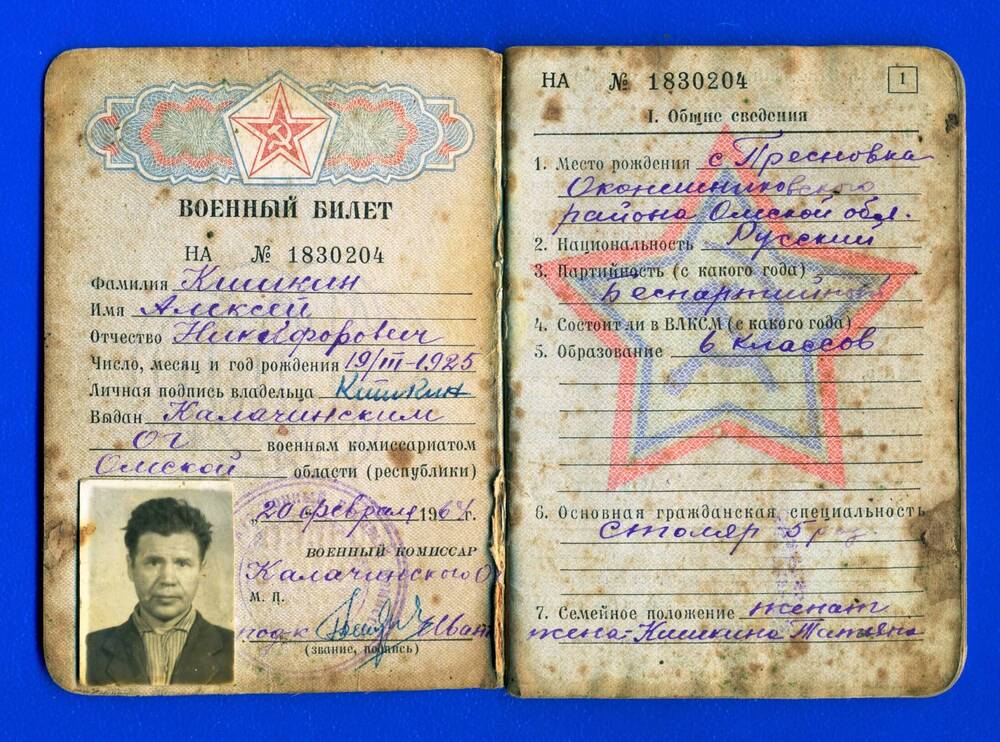 ВОЕННЫЙ БИЛЕТ
НА № 1830204
Фамилия Кишкин
Имя Алексей
Отчество Никифорович
Число, месяц и год рождения 19/III-1925
Личная подпись владельца Кишкин
Выдан Калачинским
ОГ военным комиссариатом
Омской области (республики)
„20 февраля 1964 г.
ВОЕННЫЙ КОМИССАР
Калачинского О
М. П.
подп-к Иван
(звание, подпись)
НА № 1830204
1
I. Общие сведения
1. Место рождения с Пресновка
Оконешниковского
района Омской обл.
2. Национальность Русский
3. Партийность (с какого года)
Беспартийный
4. Состоит ли в ВЛКСМ (с какого года)
5. Образование 6 классов
6. Основная гражданская специальность
столяр 5 разр.
7. Семейное положение женат
жена-Кишкина Татьяна